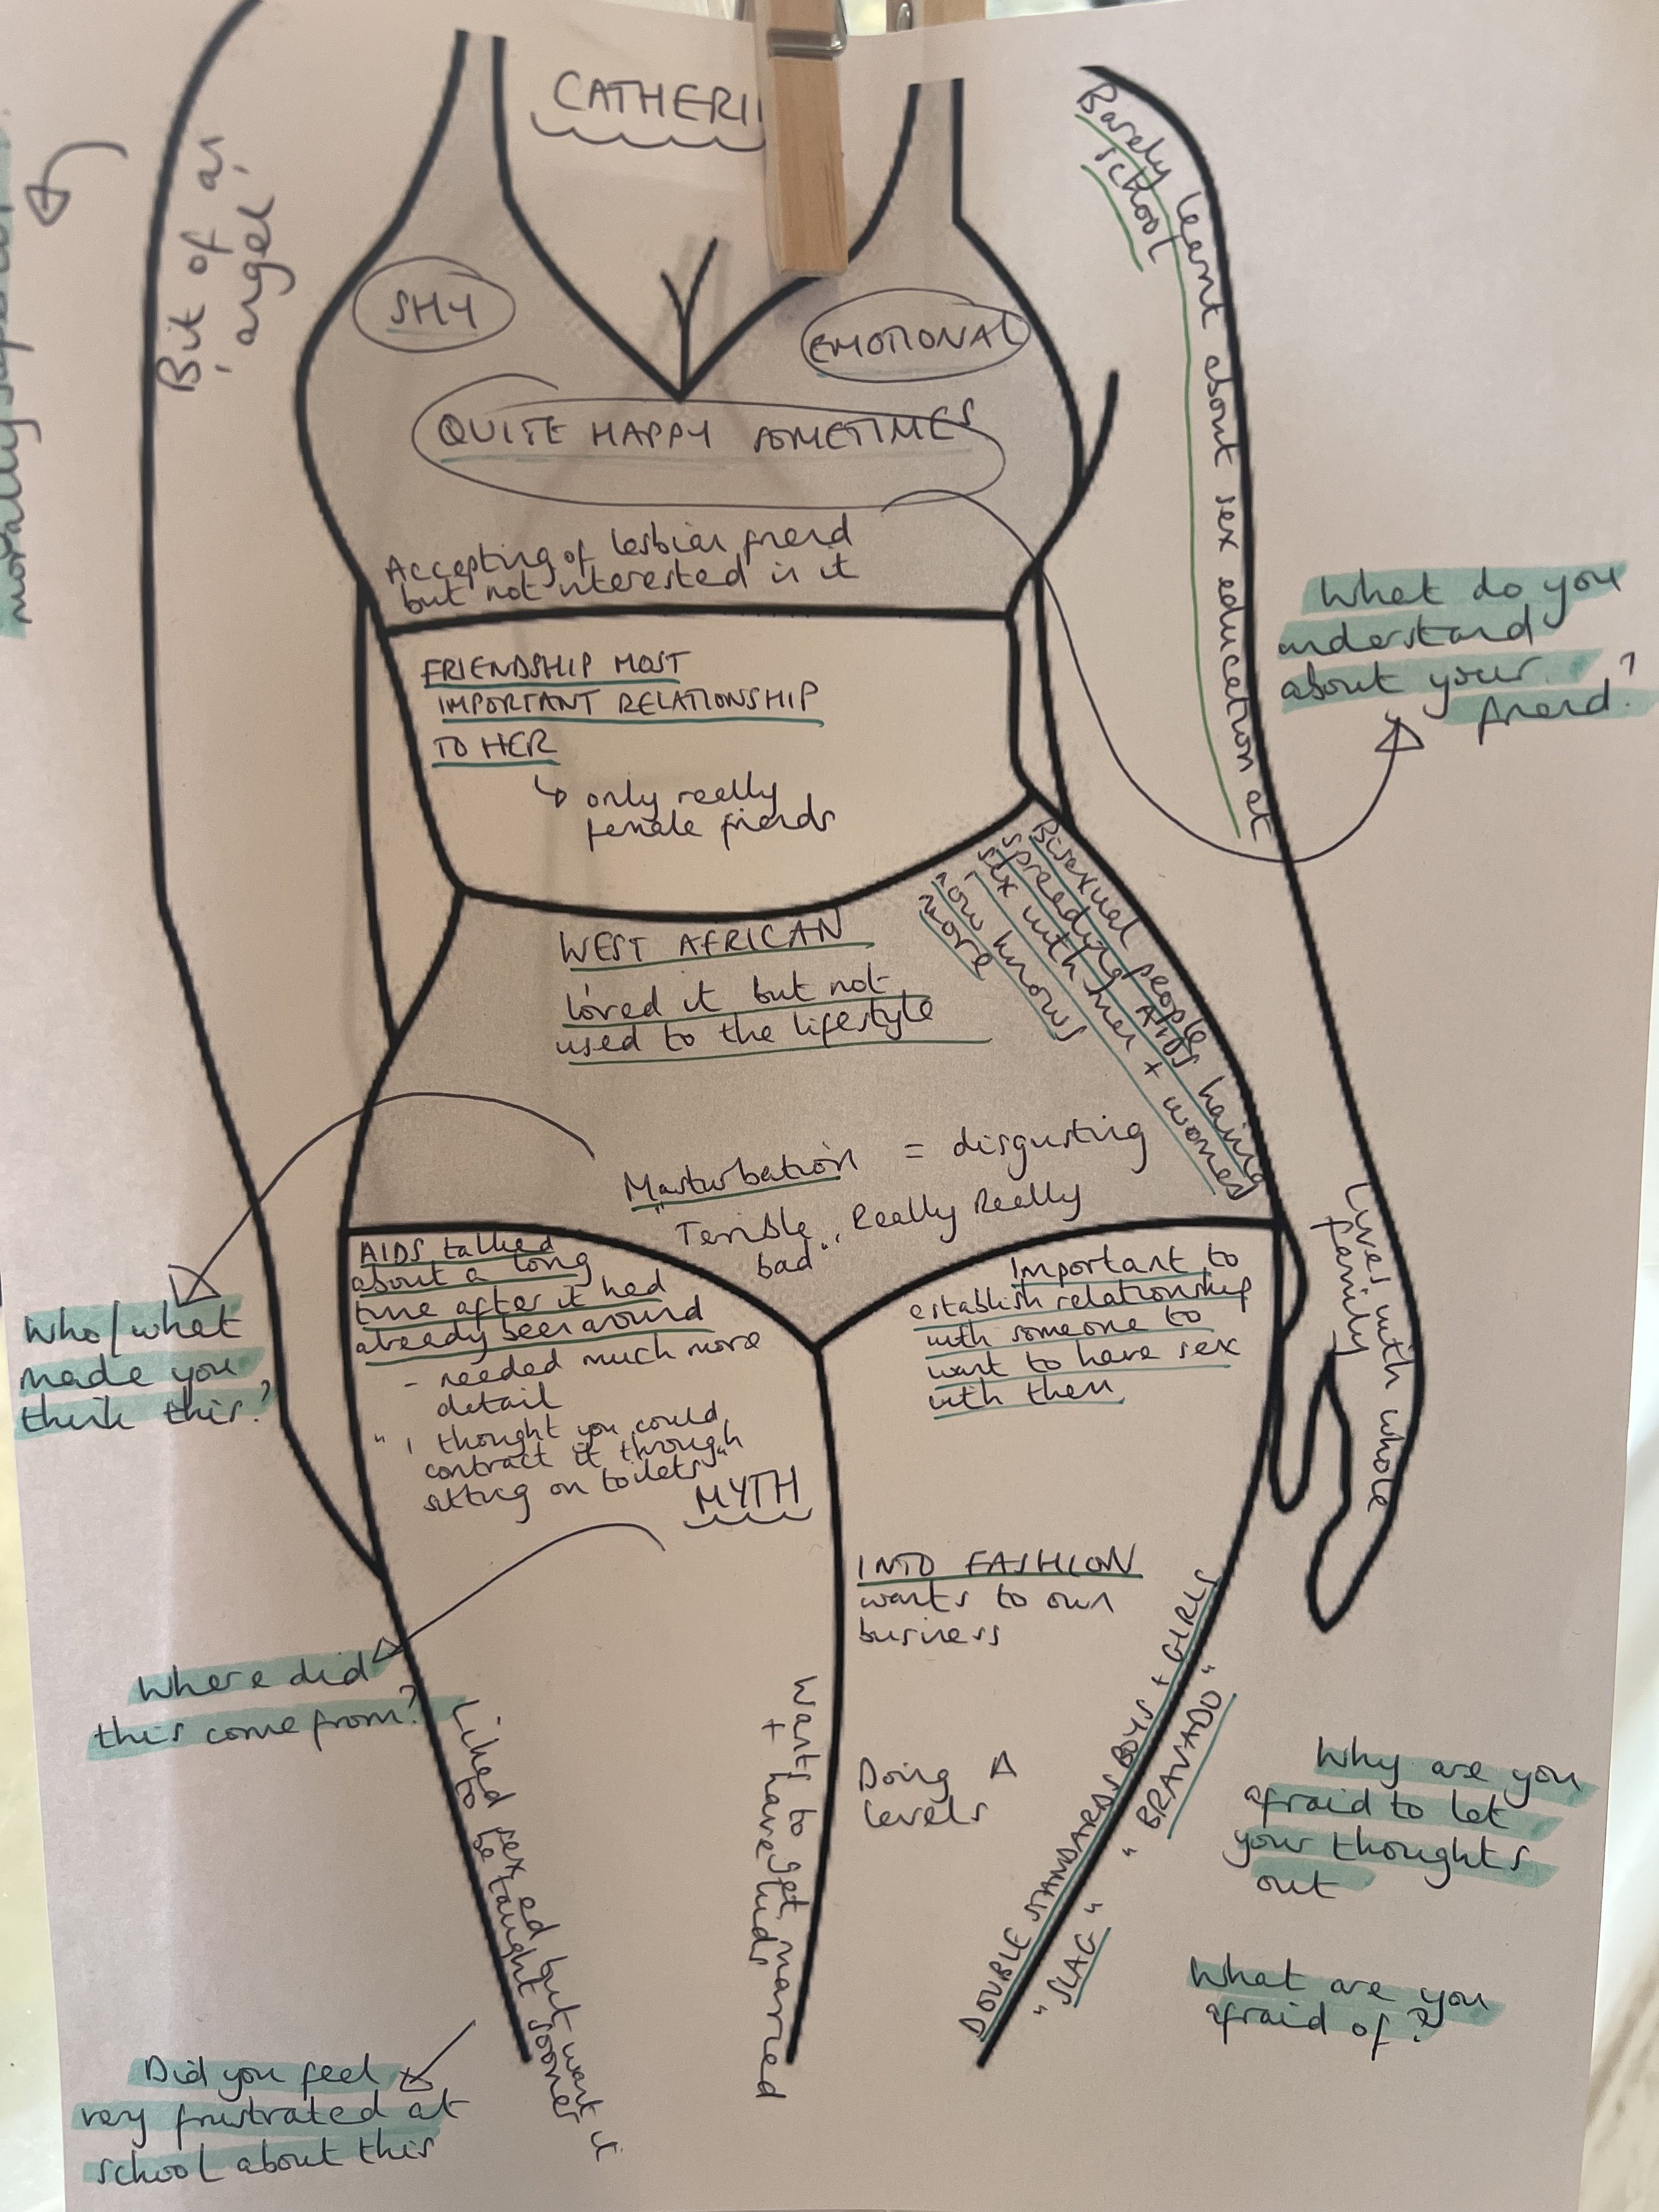 CATHERI
morally superior
Bit of an
angel
SHY
EMOTIONAL
QUITE HAPPY SOMETIMES
Accepting of lesbian friend
but not interested in it
Barely learnt about sex education at
school
What do you
understand
about your
friend?
FRIENDSHIP MOST
IMPORTANT RELATIONSHIP
TO HER
↳ only really
female friends
WEST AFRICAN
loved it but not
used to the lifestyle
Bisexual people
spreading AIDS having
sex with men + women
now knows
more
Masturbation = disgusting
"Terrible", Really Really
bad"
Who/what
made you
think this?
AIDS talked
about a long
time after it had
already been around
- needed much more
detail
" I thought you could
contract it through
sitting on toilets"
MYTH
Important to
establish relationship
with someone to
want to have sex
with them
Lives with whole
family
Where did
this come from?
INTO FASHION
wants to own
business
Doing A
levels
Liked sex ed but want it
to be taught sooner
Wants to get married
+ have kids
DOUBLE STANDARDS BOYS + GIRLS
"SLAG" "BRAVADO"
Why are you
afraid to let
your thoughts
out
What are you
afraid of?
Did you feel
very frustrated at
school about this